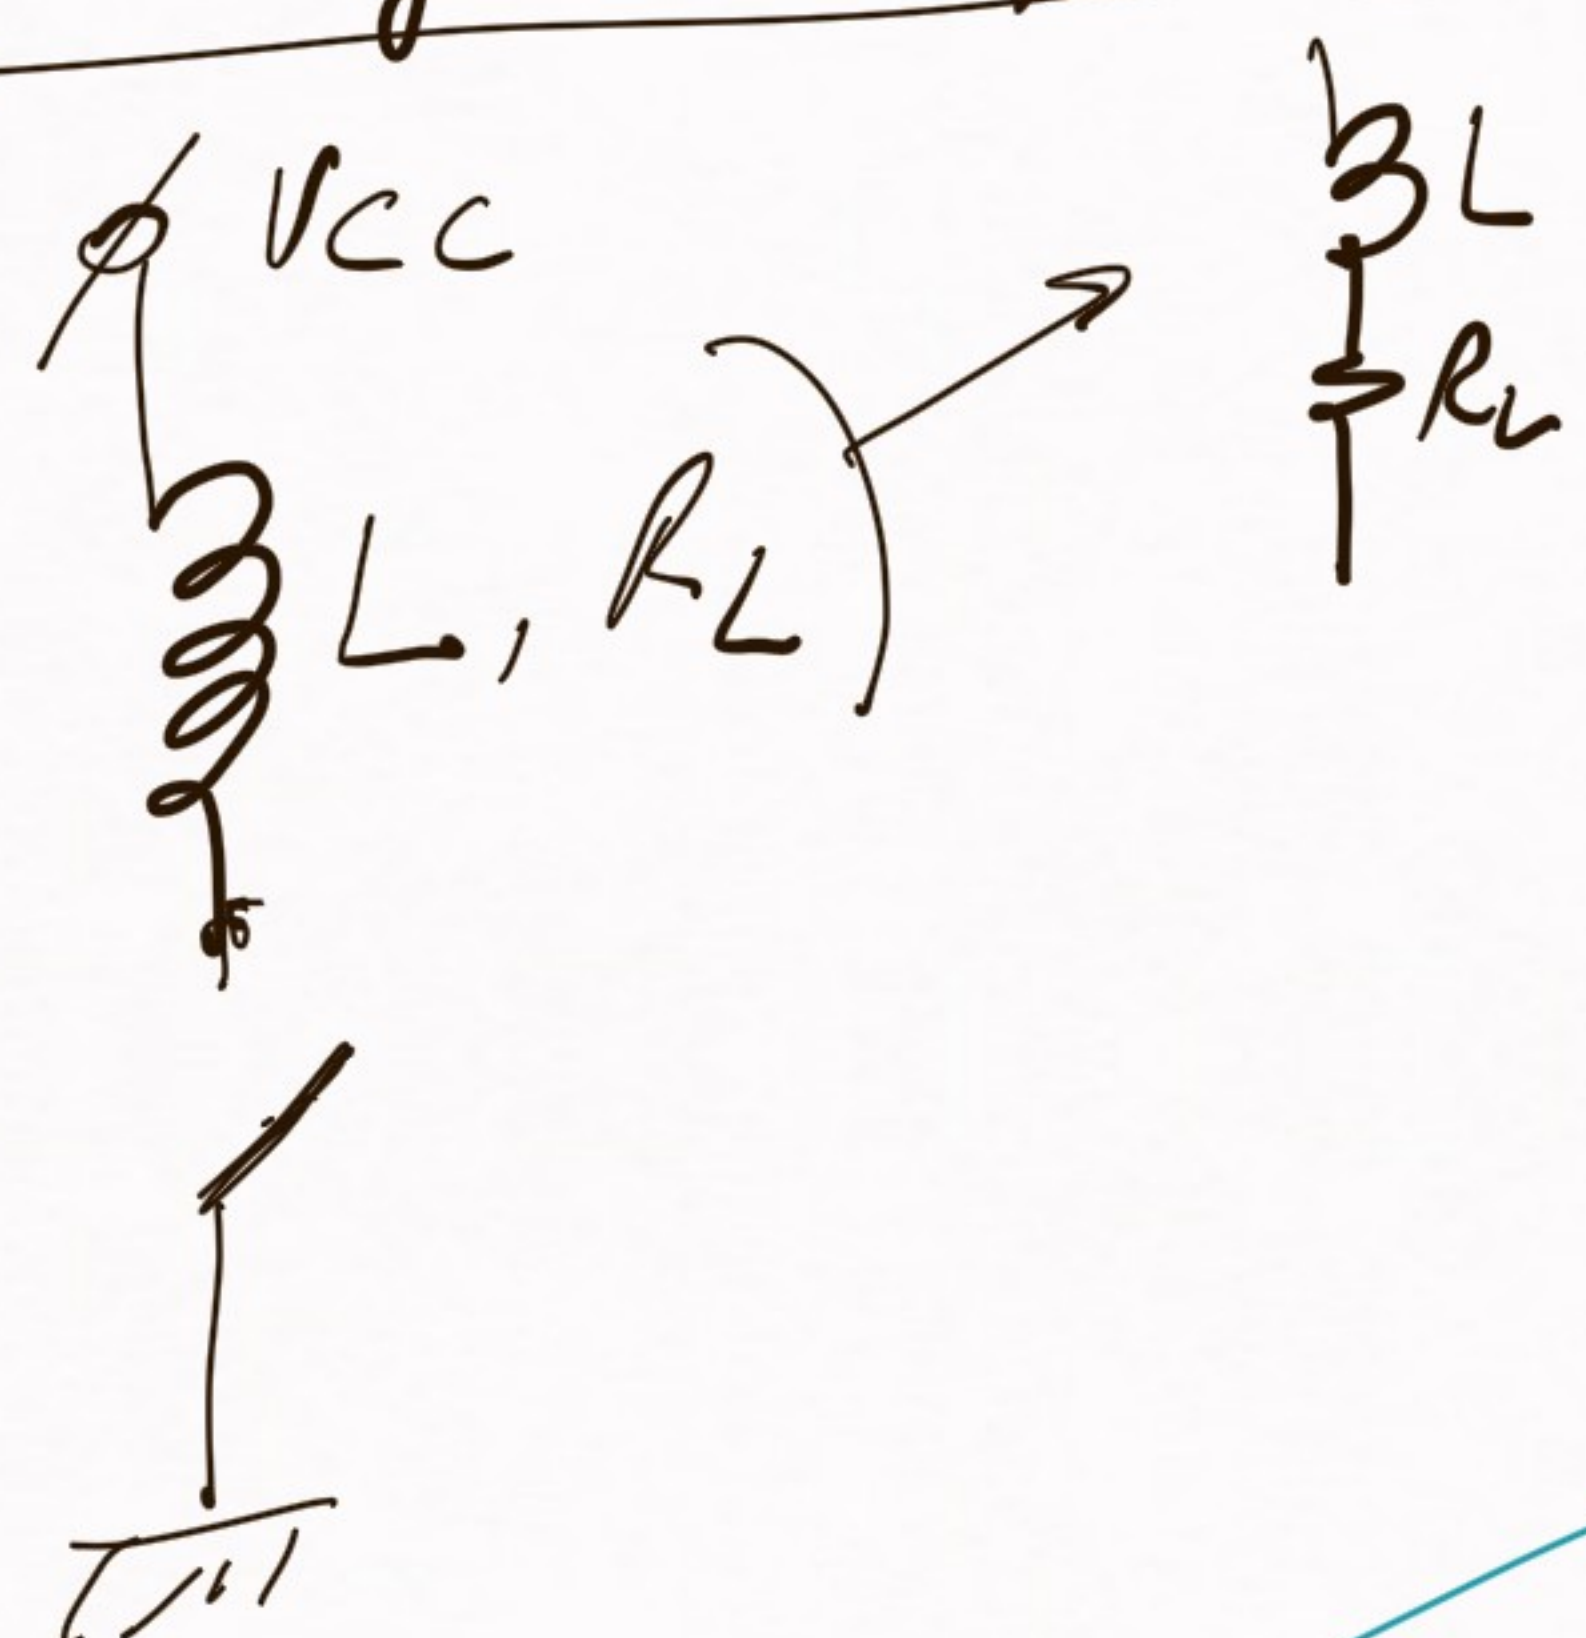 VCC
L
RL
L, RL